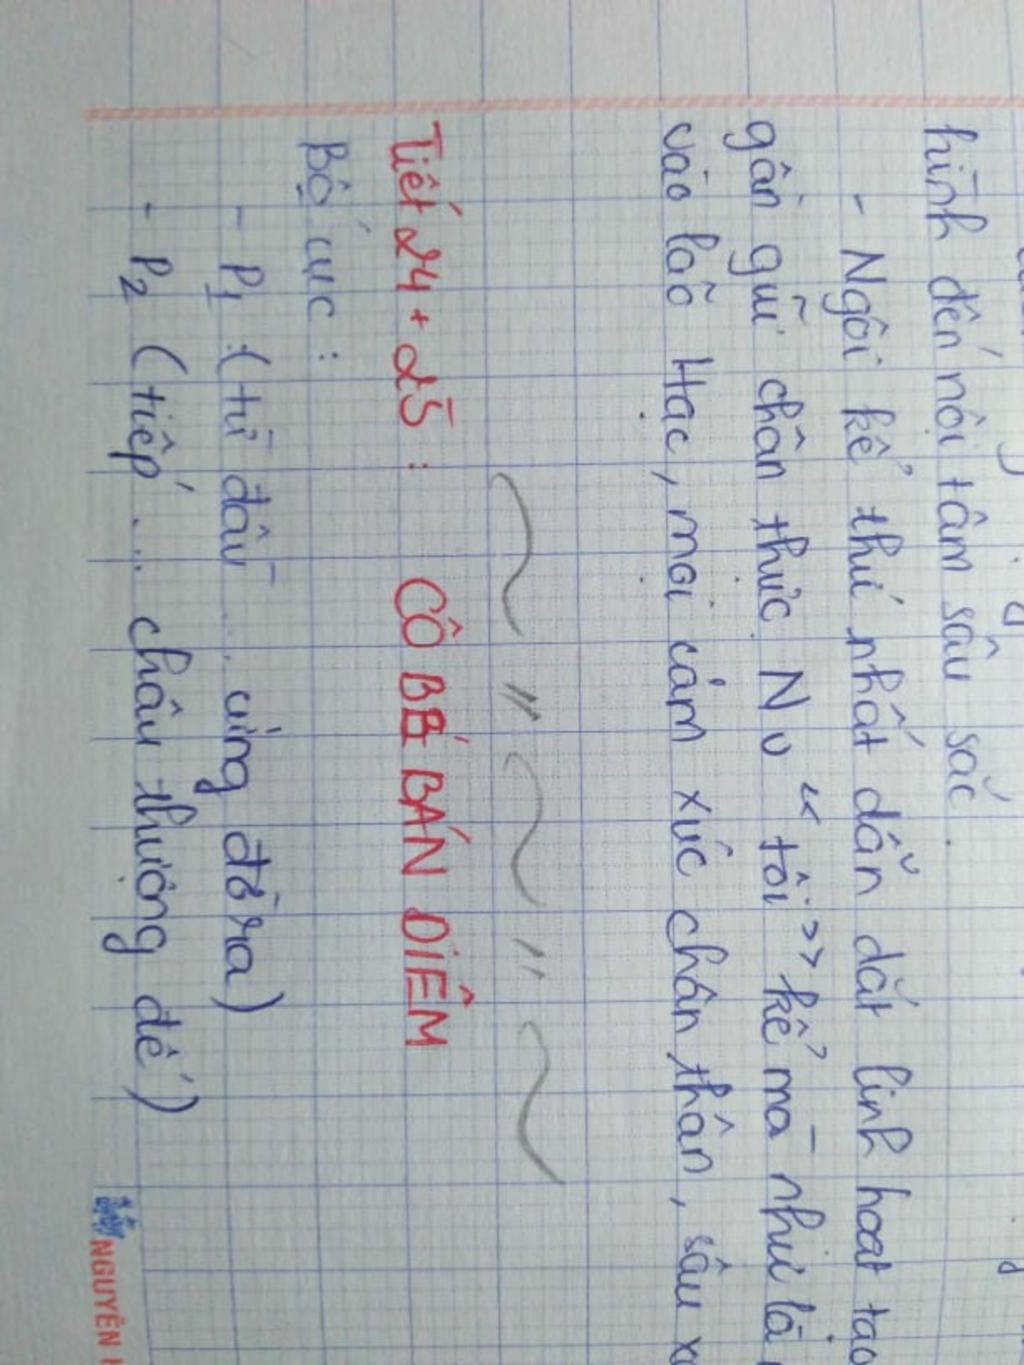 hình đến nội tâm sâu sắc.
- Ngôi kể thứ nhất dẫn dắt linh hoạt tạo
gần gũi chân thực Nv "tôi" kể mà như là
vào lão Hạc, mọi cảm xúc chân thân, sâu x
Tiết 24 + 25 : CÔ BÉ BÁN DIÊM
Bố cục :
- P1 (từ đầu ... cứng đờ ra)
- P2 (tiếp ... chầu thượng đế)
NGUYÊN